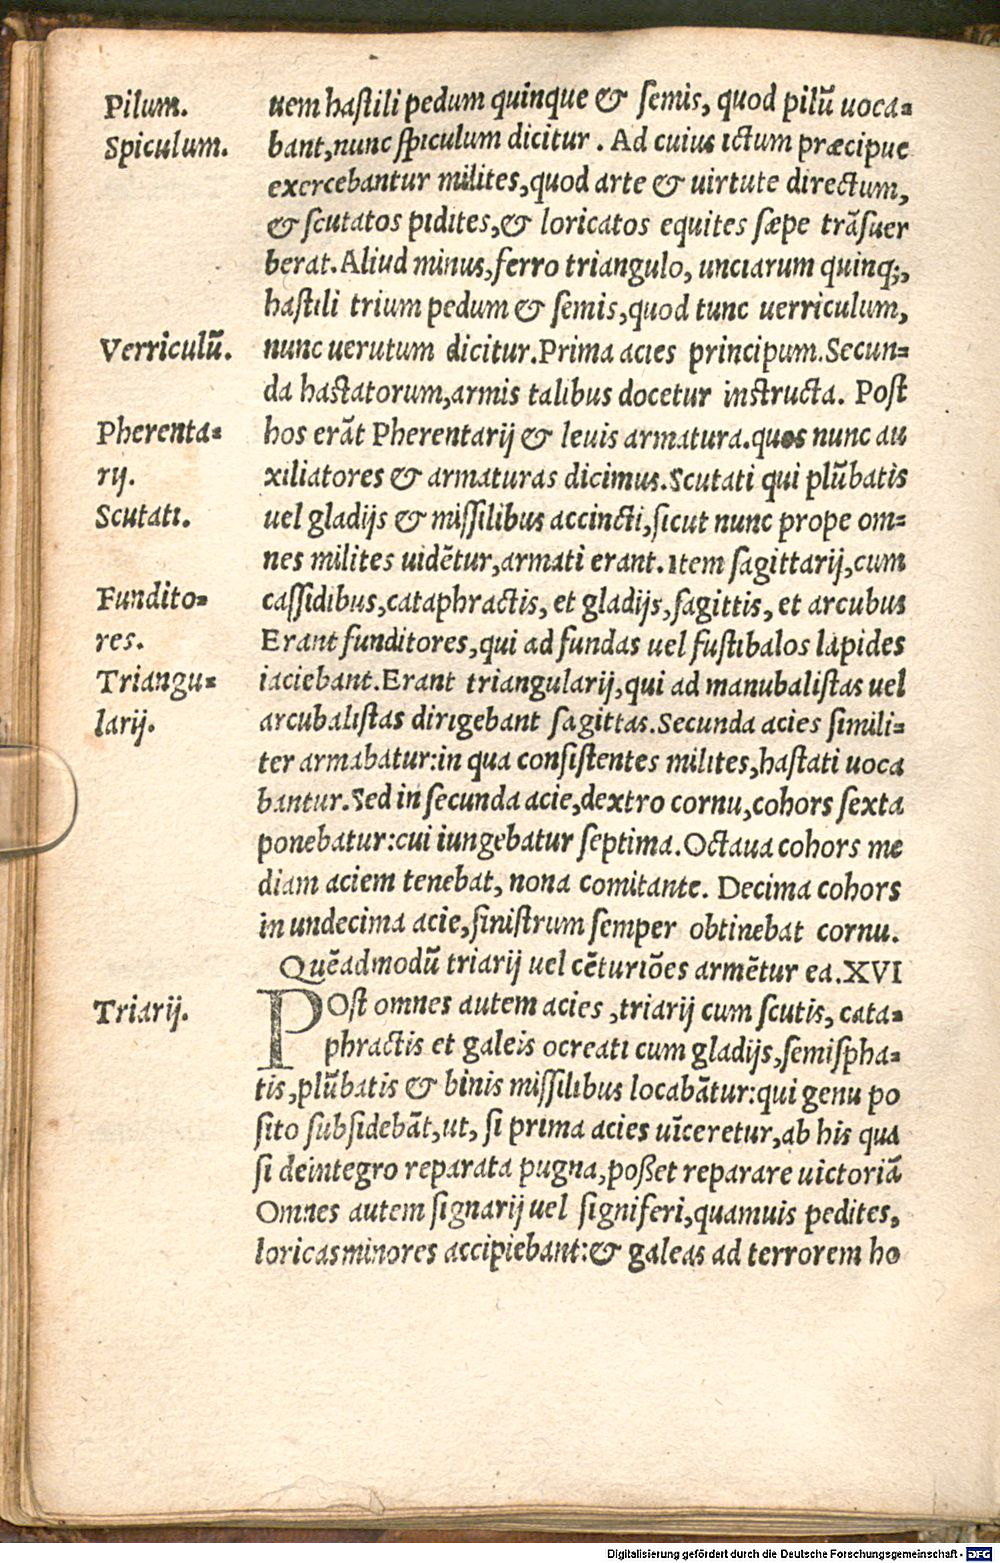 Pilum.
Spiculum.
Verriculũ.
Pherenta=
rij.
Scutati.
Fundito=
res.
Triangu=
larij.
Triarij.
uem hastili pedum quinque & semis, quod pilũ uoca=
bant, nunc spiculum dicitur . Ad cuius ictum præcipue
exercebantur milites, quod arte & uirtute directum,
& scutatos pidites, & loricatos equites sæpe trãsuer
berat. Aliud minus, ferro triangulo, unciarum quinq;,
hastili trium pedum & semis, quod tunc uerriculum,
nunc uerutum dicitur. Prima acies principum. Secun=
da hastatorum, armis talibus docetur instructa. Post
hos erãt Pherentarij & leuis armatura. quos nunc au
xiliatores & armaturas dicimus. Scutati qui plũbatis
uel gladijs & missilibus accincti, sicut nunc prope om=
nes milites uidẽtur, armati erant. item sagittarij, cum
cassidibus, cataphractis, et gladijs, sagittis, et arcubus
Erant funditores, qui ad fundas uel fustibalos lapides
iaciebant. Erant triangularij, qui ad manubalistas uel
arcubalistas dirigebant sagittas. Secunda acies simili=
ter armabatur: in qua consistentes milites, hastati uoca
bantur. Sed in secunda acie, dextro cornu, cohors sexta
ponebatur: cui iungebatur septima. Octaua cohors me
diam aciem tenebat, nona comitante. Decima cohors
in undecima acie, sinistrum semper obtinebat cornu.
Quẽadmodũ triarij uel cẽturiões armẽtur ca. XVI
POst omnes autem acies, triarij cum scutis, cata=
phractis et galeis ocreati cum gladijs, semispha=
tis, plũbatis & binis missilibus locabãtur: qui genu po
sito subsidebãt, ut, si prima acies uĩceretur, ab his qua
si deintegro reparata pugna, posset reparare uictoriã
Omnes autem signarij uel signiferi, quamuis pedites,
loricas minores accipiebant: & galeas ad terrorem ho
Digitalisierung gefördert durch die Deutsche Forschungsgemeinschaft - DFG